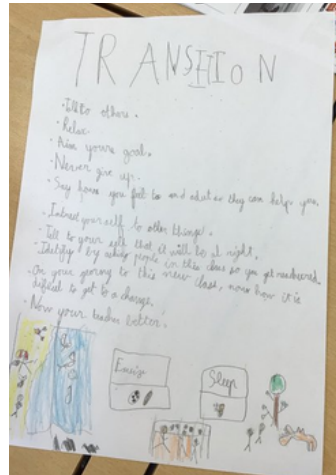 TRANSITION
· Tell to others.
· Relax.
· Aim youre goal.
· Never give up.
· Say how you feel to and adult or they can help you.
· Intrest yourself to other things!
· Tell to your self that it will be al right.
· Identify by asking people in this class so you get
· On your going to this new class, now how it is
difficult to get to a change.
· Now your teacher better.
Sleep